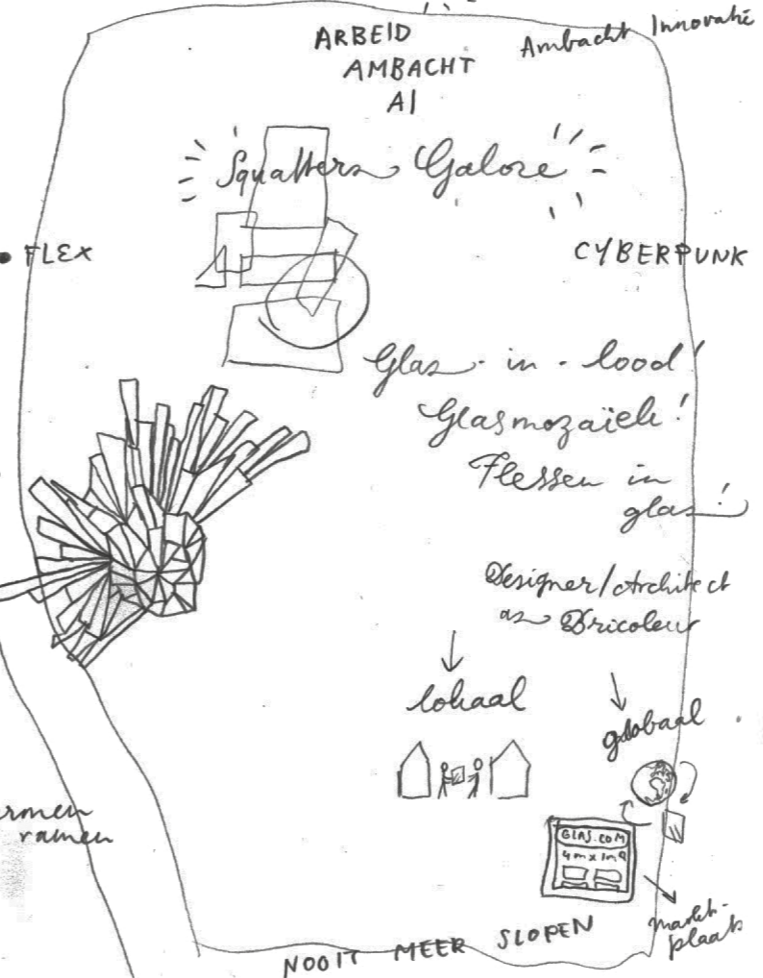 ARBEID
AMBACHT
AI
Ambacht Innovatie
Squatters Galore
FLEX
CYBERPUNK
Glas-in-lood!
Glasmozaïek!
Flessen in
glas!
Designer/Architect
as Bricoleur
lokaal
globaal
ramen
GLAS.COM
4m x 1m
markt-
plaats
NOOIT MEER SLOPEN